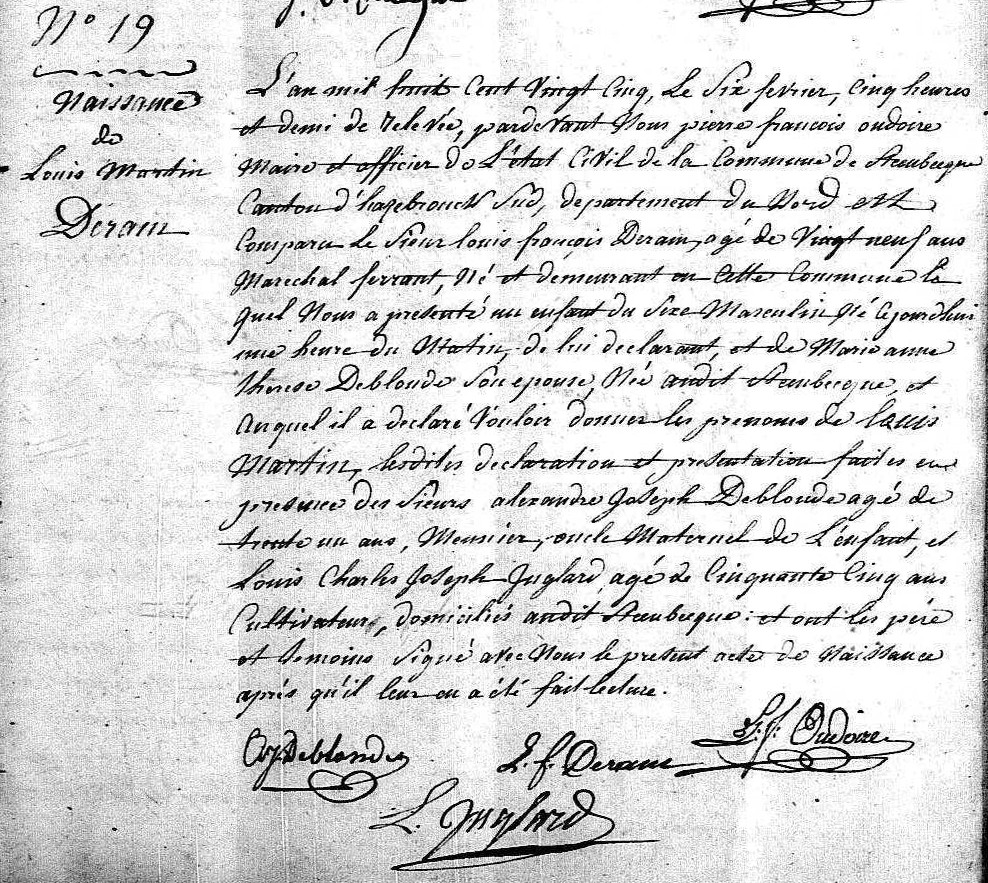 N° 19
Naissance
de
Louis Martin
Deram
L'an mil huit Cent Vingt Cinq, Le Six fevrier, Cinq heures
et demi de relevée, pardevant Nous pierre francois oudoire
Maire et officier de L'état Civil de la Commune de Steenbecque
Canton d'hazebrouck Sud, departement du Nord est
Comparu Le Sieur louis françois Deram, agé de Vingt neuf ans
Marechal ferrant, Né et demeurant en Cette Commune le
quel Nous a presenté un enfant du Sexe Masculin Né Cejourdhui
une heure du Matin, de lui declarant, et de Marie anne
therese Deblonde Son epouse, Née audit Steenbecque, et
Auquel il a declaré Vouloir donner les prenoms de louis
Martin, lesdites declaration et presentation faites en
presence des Sieurs alexandre Joseph Deblonde agé de
trente un ans, Meunier, oncle Maternel de L'enfant, et
Louis Charles Joseph Juglard, agé de Cinquante Cinq ans
Cultivateur, domiciliés audit Steenbecque: et ont les père
et temoins Signé avec Nous le present acte de Naissance
après qu'il leur en a été fait lecture.
Deblonde L. f. Deram P. f. Oudoire
L. Juglard